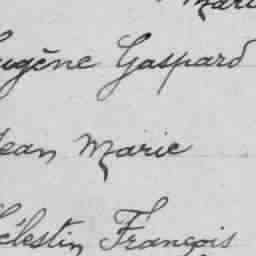 Eugène Gaspard
Jean Marie
Célestin François